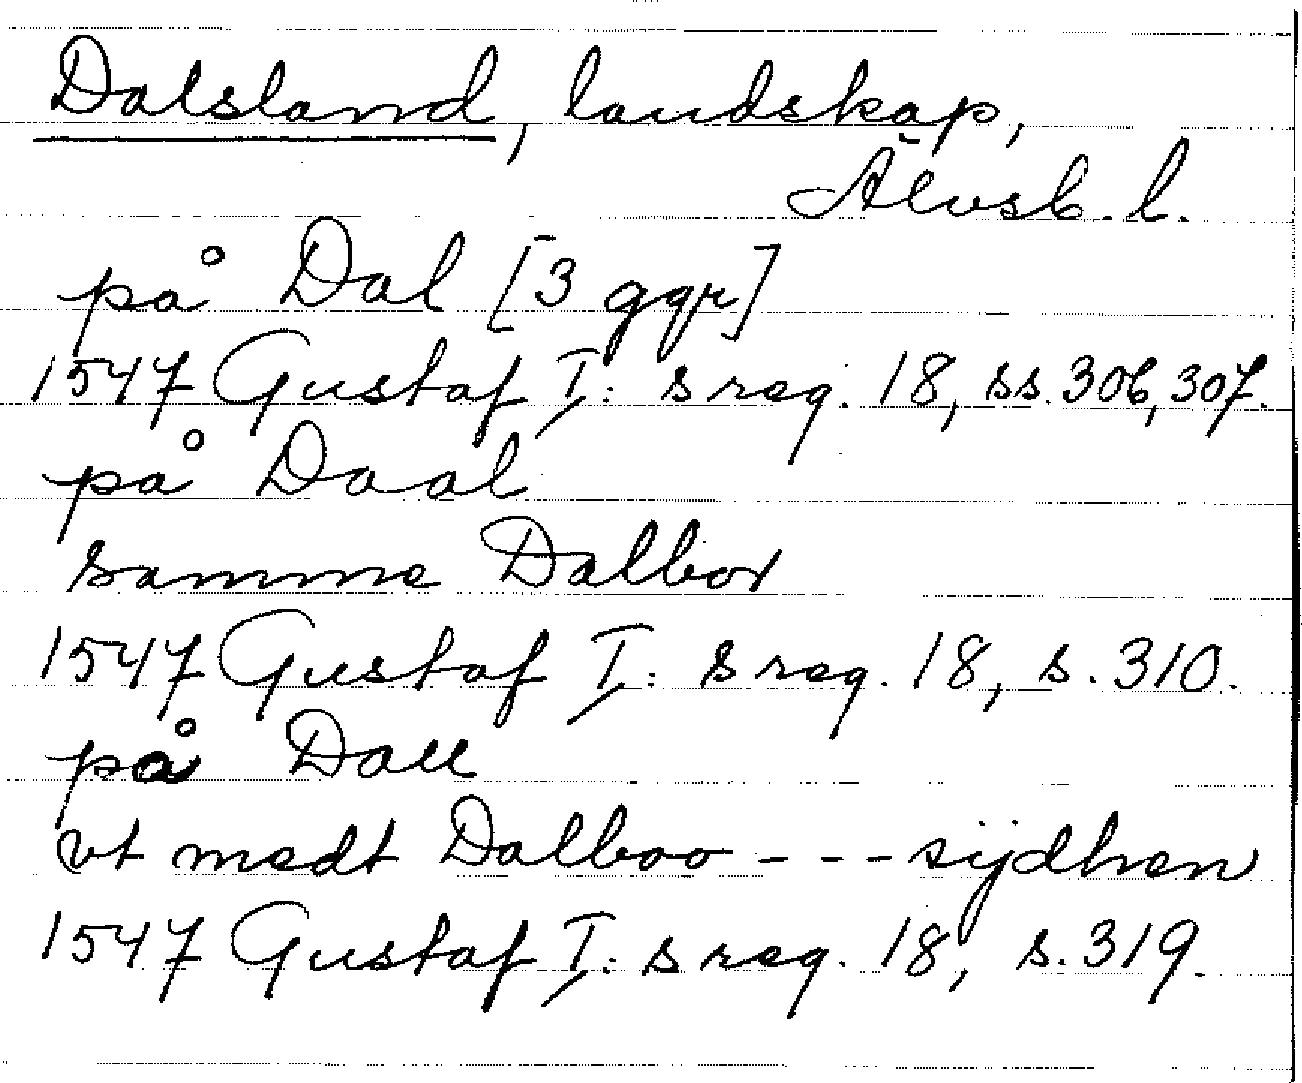 Dalsland, landskap,
Älvsb. l.
på Dal [3 ggr]
1547 Gustaf I: s reg. 18, ss. 306, 307.
på Daal
samme Dalbor
1547 Gustaf I: s reg. 18, s. 310.
på Dall
vt medt Dalboo - - - sijdhen
1547 Gustaf I: s reg. 18, s. 319.